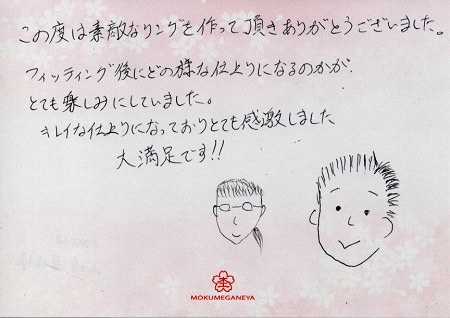 この度は素敵なリングを作って頂きありがとうございました。
フィッティング後にどの様な仕上りになるのかが
とても楽しみにしていました。
キレイな仕上りになっておりとても感激しました
大満足です!!
MOKUMEGANEYA